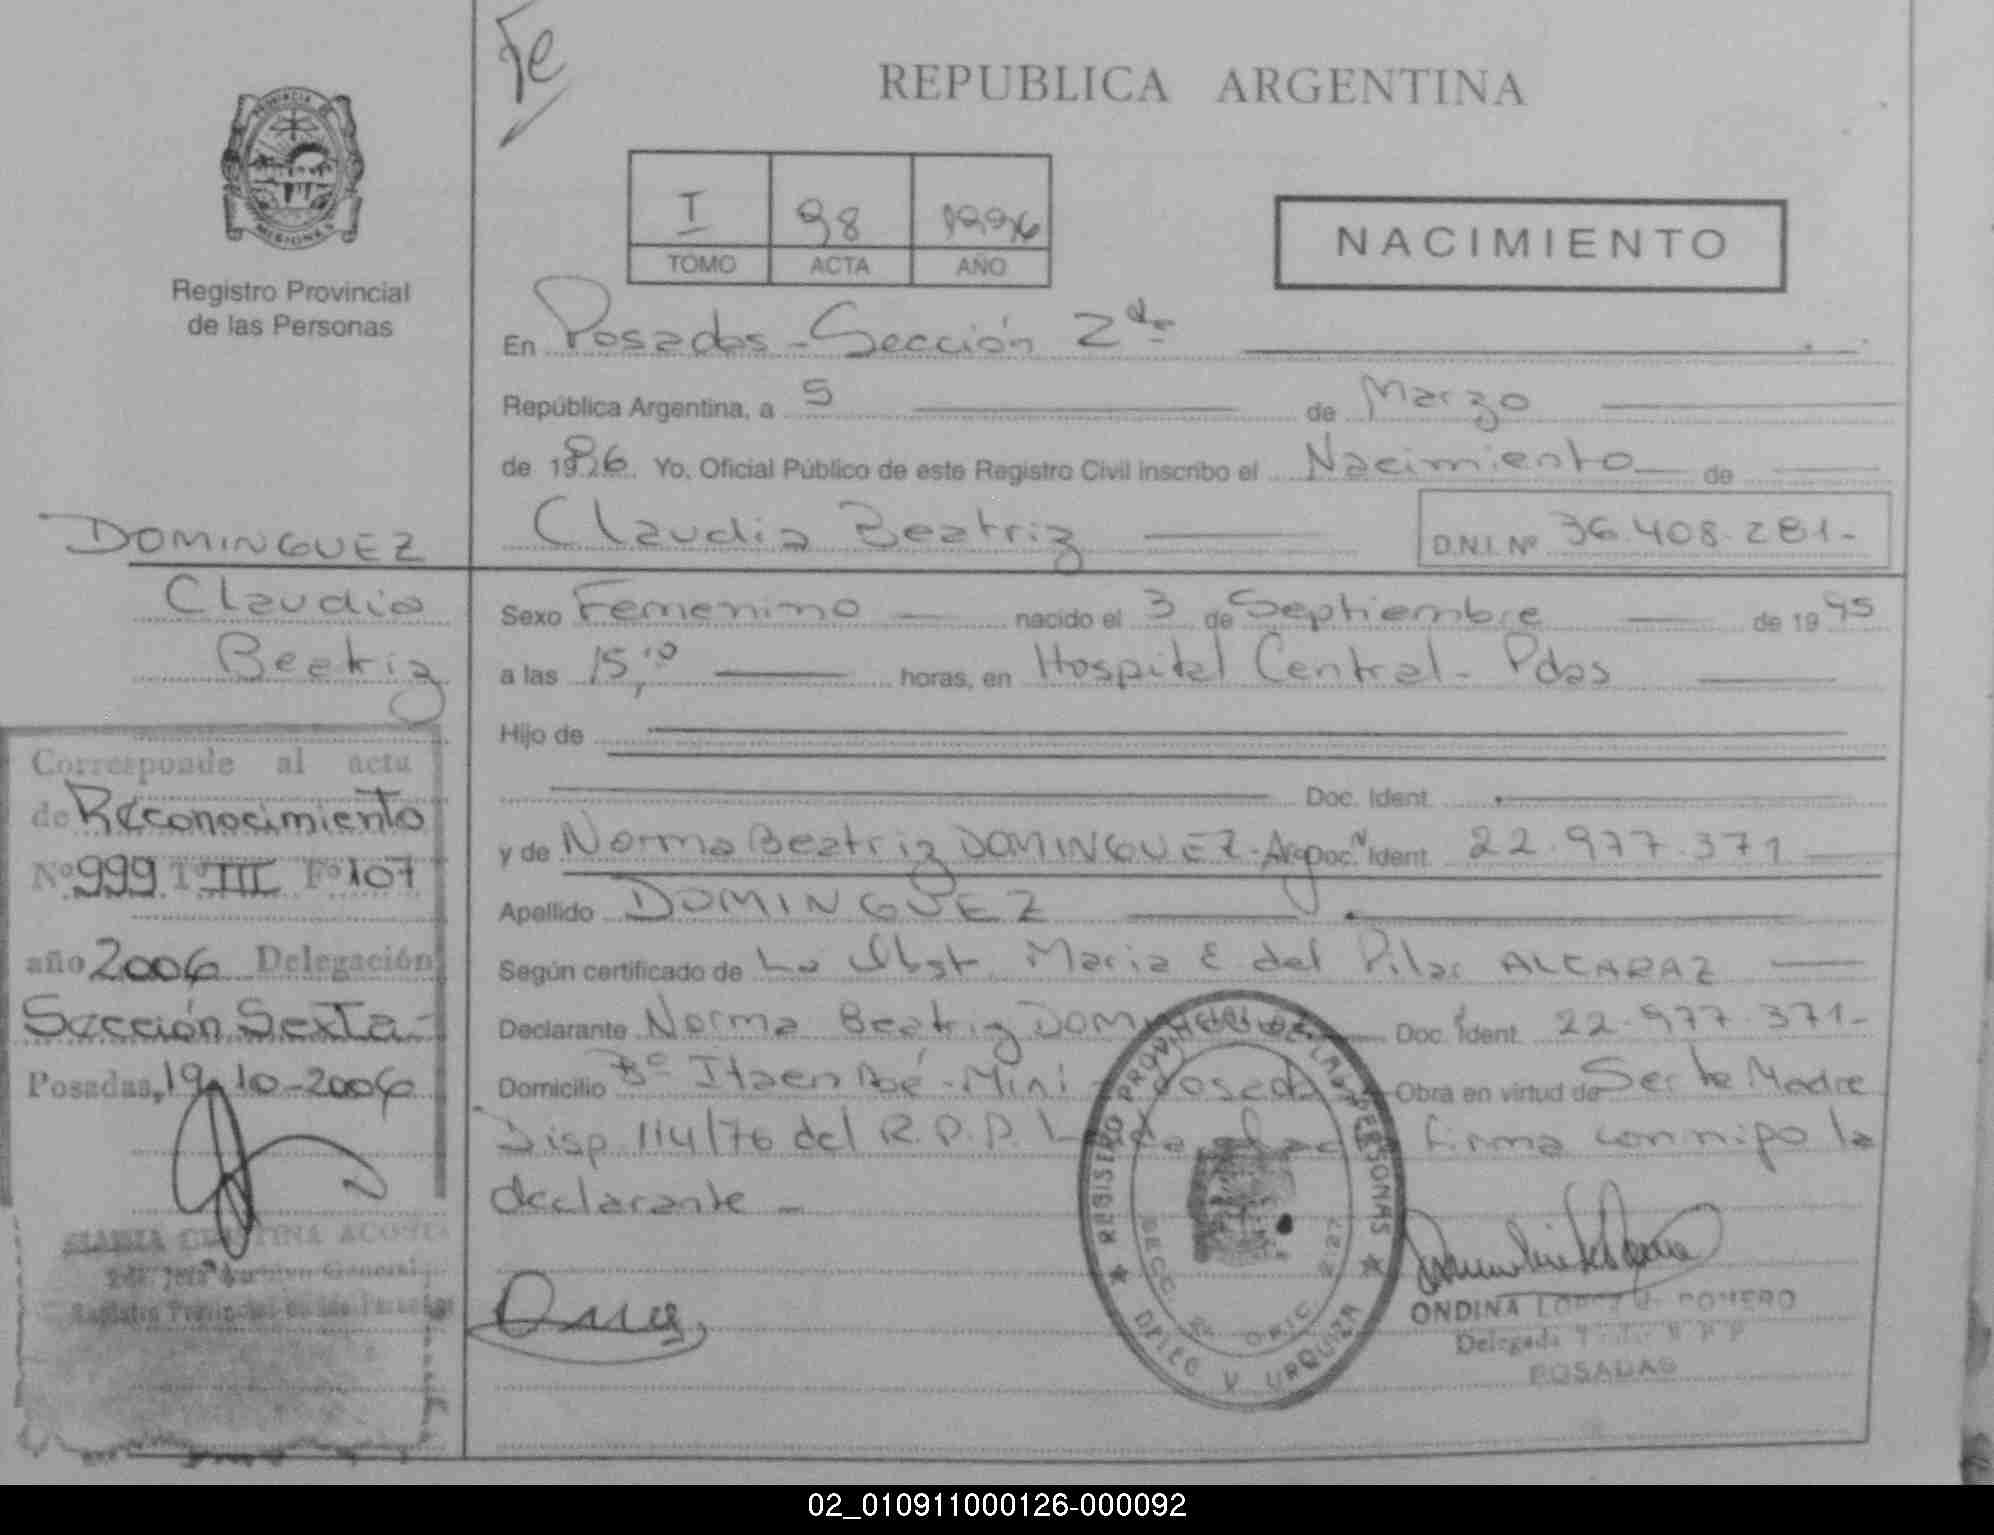 Fe
REPUBLICA ARGENTINA
PROVINCIA DE
MISIONES
Registro Provincial
de las Personas
I 98 1996
TOMO ACTA AÑO
NACIMIENTO
En Posadas - Sección 2da
República Argentina, a 5 de Marzo
de 1996 Yo, Oficial Público de este Registro Civil inscribo el Nacimiento de
Claudia Beatriz D.N.I. Nº 36.408.281-
DOMINGUEZ
Claudia
Beatriz
Sexo Femenino nacido el 3 de Septiembre de 1995
a las 15,10 horas, en Hospital Central - Pdas
Hijo de
Doc. Ident.
y de Norma Beatriz DOMINGUEZ - Arg Doc. Ident. 22.977.371
Apellido DOMINGUEZ
Según certificado de La Obst. Maria E del Pilar ALCARAZ
Declarante Norma Beatriz Doc. Ident. 22.977.371-
Domicilio Bº Itaembé - Mini - Posadas Obra en virtud de Ser la Madre
Disp. 114/76 del R.P.P. firma conmigo la
declarante -
Corresponde al acta
de Reconocimiento
Nº 999 Tº III Fº 107
año 2006 Delegación
Sección Sexta -
Posadas, 19-10-2006
MARIA CRISTINA ACOSTA
Archivo General
Registro Provincial de las Personas
REGISTRO PROVINCIAL DE LAS PERSONAS
DPTO V URQUIZA
ONDINA LOPEZ de ROMERO
Delegada
POSADAS
02_010911000126-000092